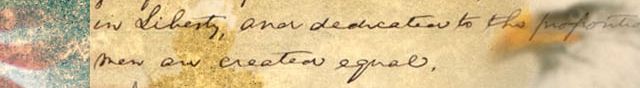 in Liberty, and dedicated to the proposition
men are created equal.